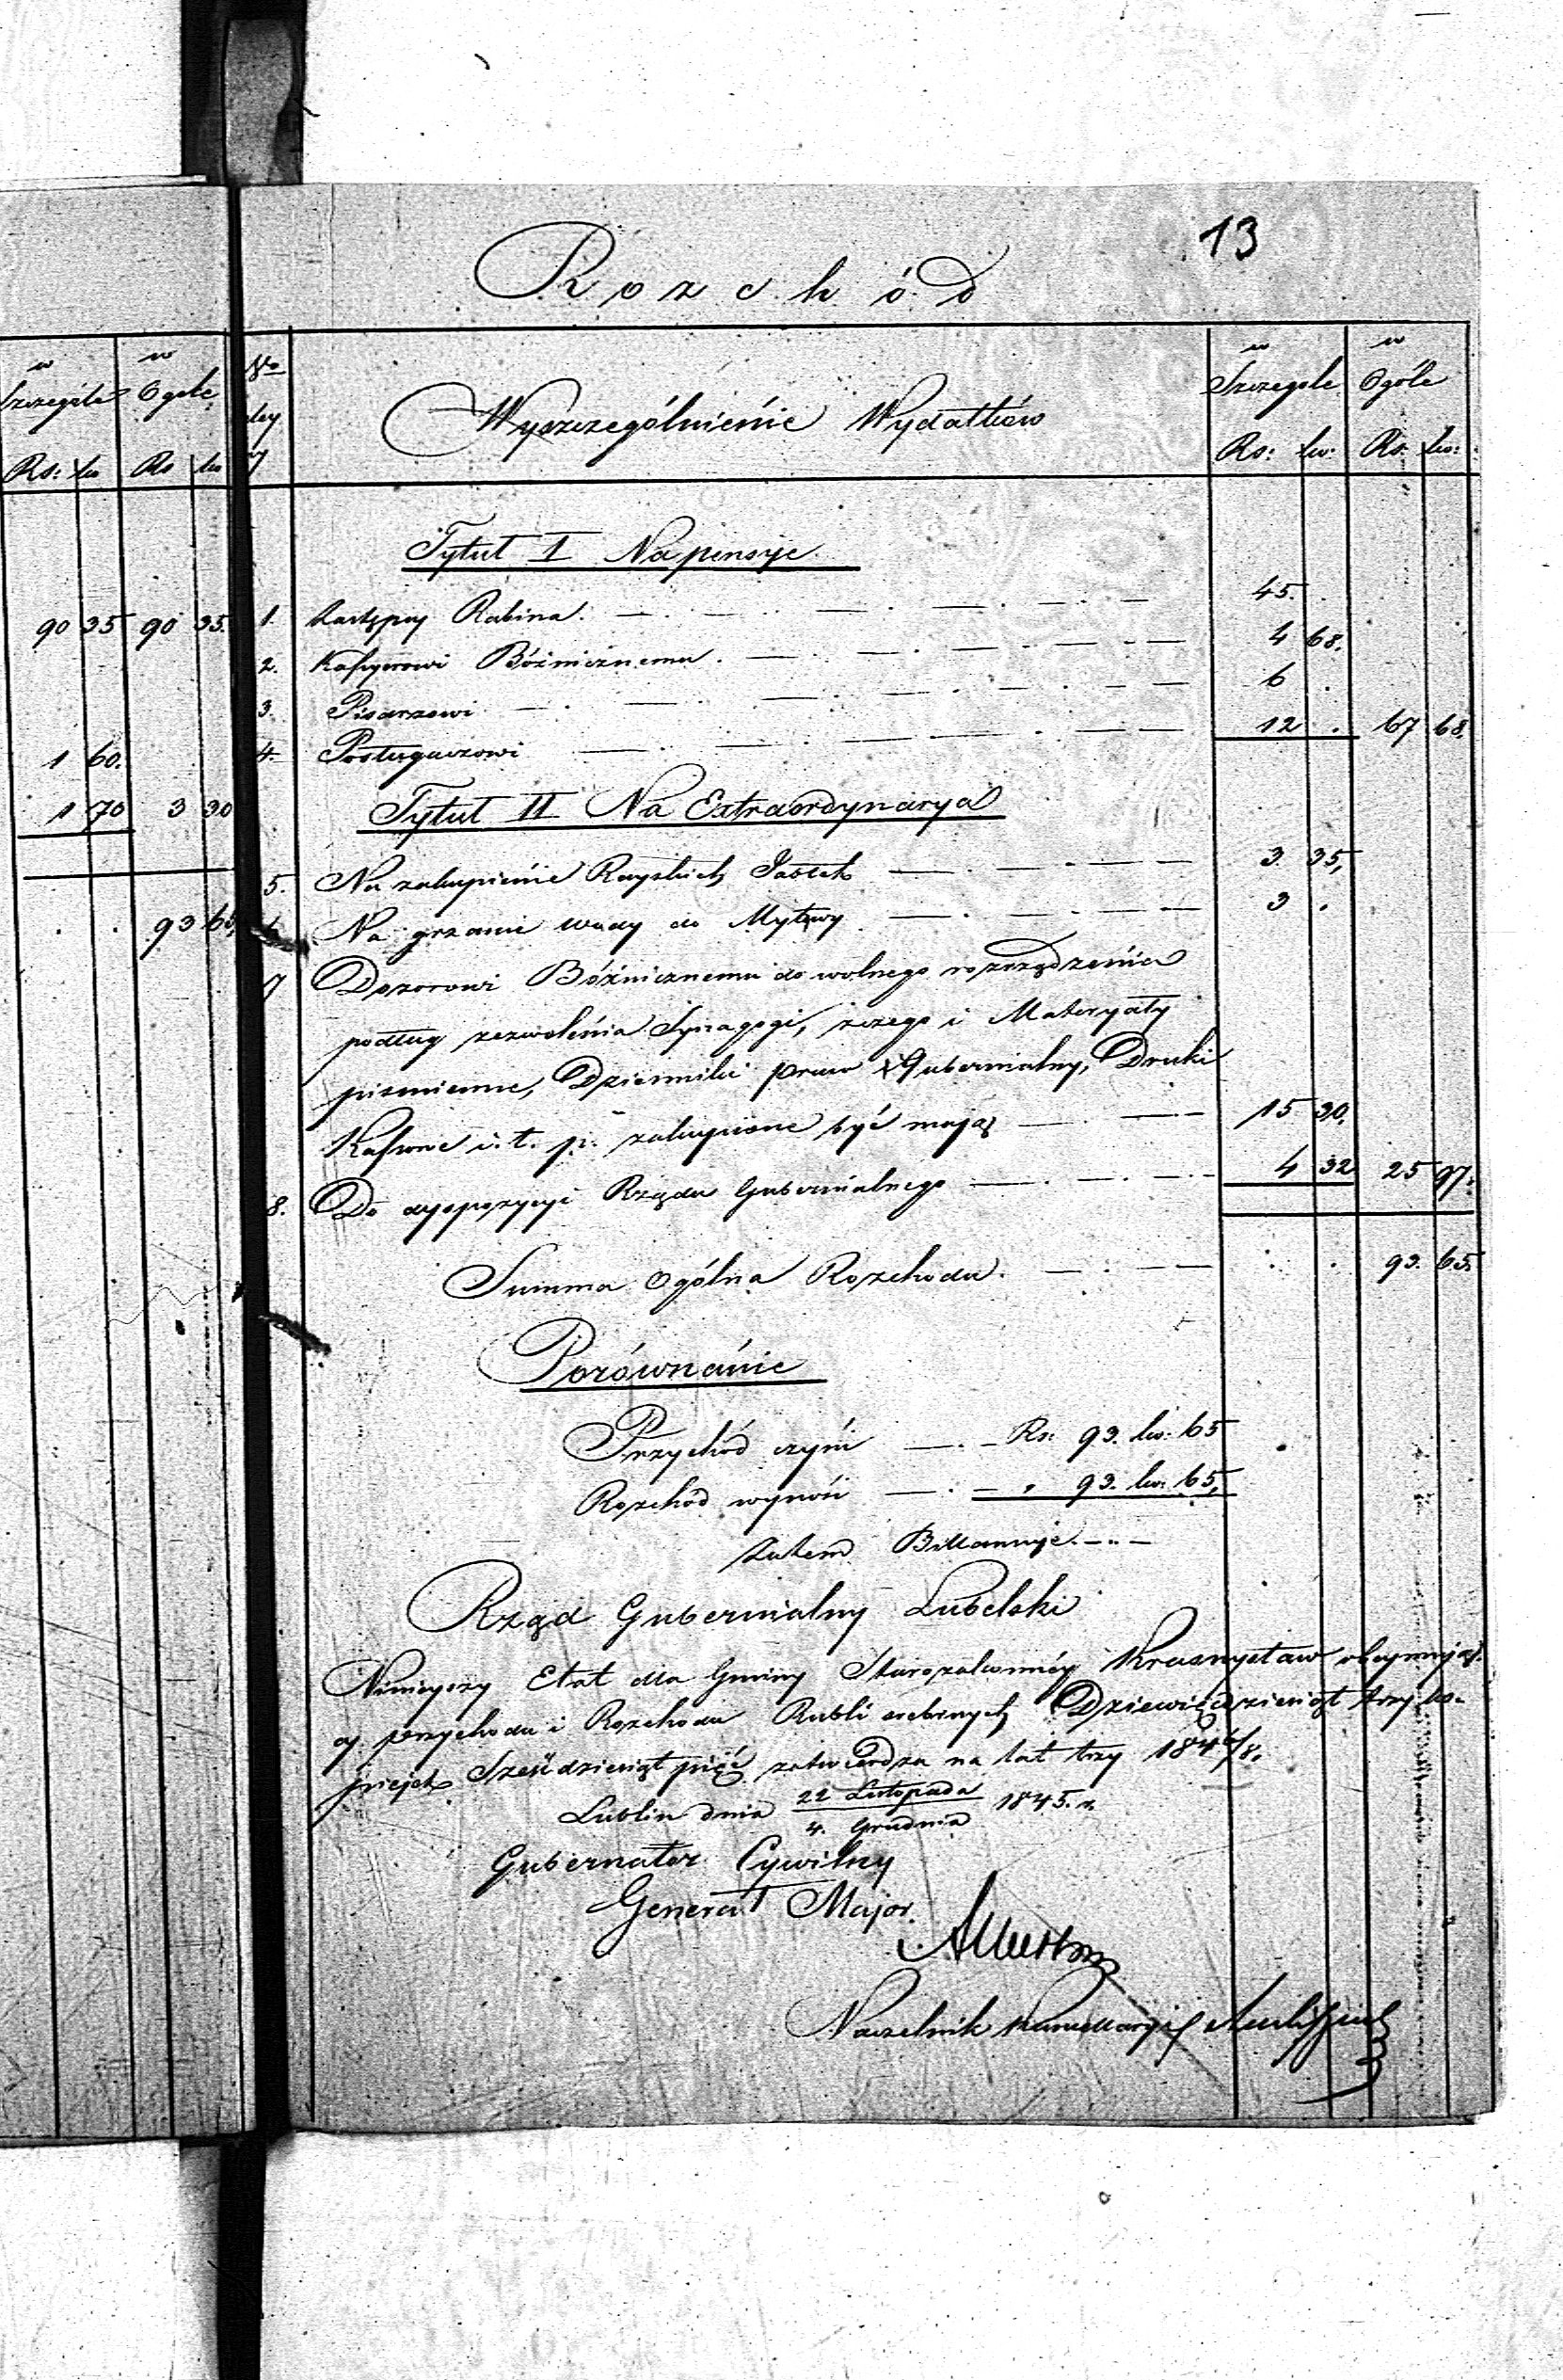 13
Rozchód
w Szczególe w Ogóle
Rs: kw Rs kw
90 35 90 35.
1 60.
1 70 3 30
. . 93 65,
No
Wyszczególnienie Wydatków
w Szczególe w Ogóle
Rs: kw: Rs. kw:
Tytuł I Na pensye
1. Zastępcy Rabina. 45.
2. Kassyerowi Bóźnicznemu. 4 68.
3. Pisarzowi 6 .
4. Posługaczowi 12 . 67 68.
Tytuł II Na Extraordynarya
5. Na zakupienie Rayskich Jabłek 3. 35,
6. Na grzanie wody do Mykwy 3 .
7 Dozorowi Bóźnicznemu do wolnego rozrządzenia
podług zezwolenia Synagogi, z czego i Materyały
piśmienne, Dzienniki praw i Gubernialny, Druki
Kassowe i. t. p. zakupione być mają 15 30.
8. Do dyspozycyi Rządu Gubernialnego 4 32 25 97.
Summa Ogólna Rozchodu. . . 93. 65
Porównanie
Przychód czyni Rs. 93. kw: 65
Rozchód wynosi " 93. kw: 65,
Zatem Billansuje.
Rząd Gubernialny Lubelski
Ninieyszy Etat dla Gminy Starozakonnéy Krasnystaw obeymują-
cy przychodu i Rozchodu Rubli srebrnych Dziewięćdziesiąt trzy ko-
piejek Sześćdziesiąt pięć zatwierdza na lat trzy 1846/8.
Lublin dnia 22 Listopada / 4. Grudnia 1845. r.
Gubernator Cywilny
Generał Major.
Naczelnik Kancellaryi